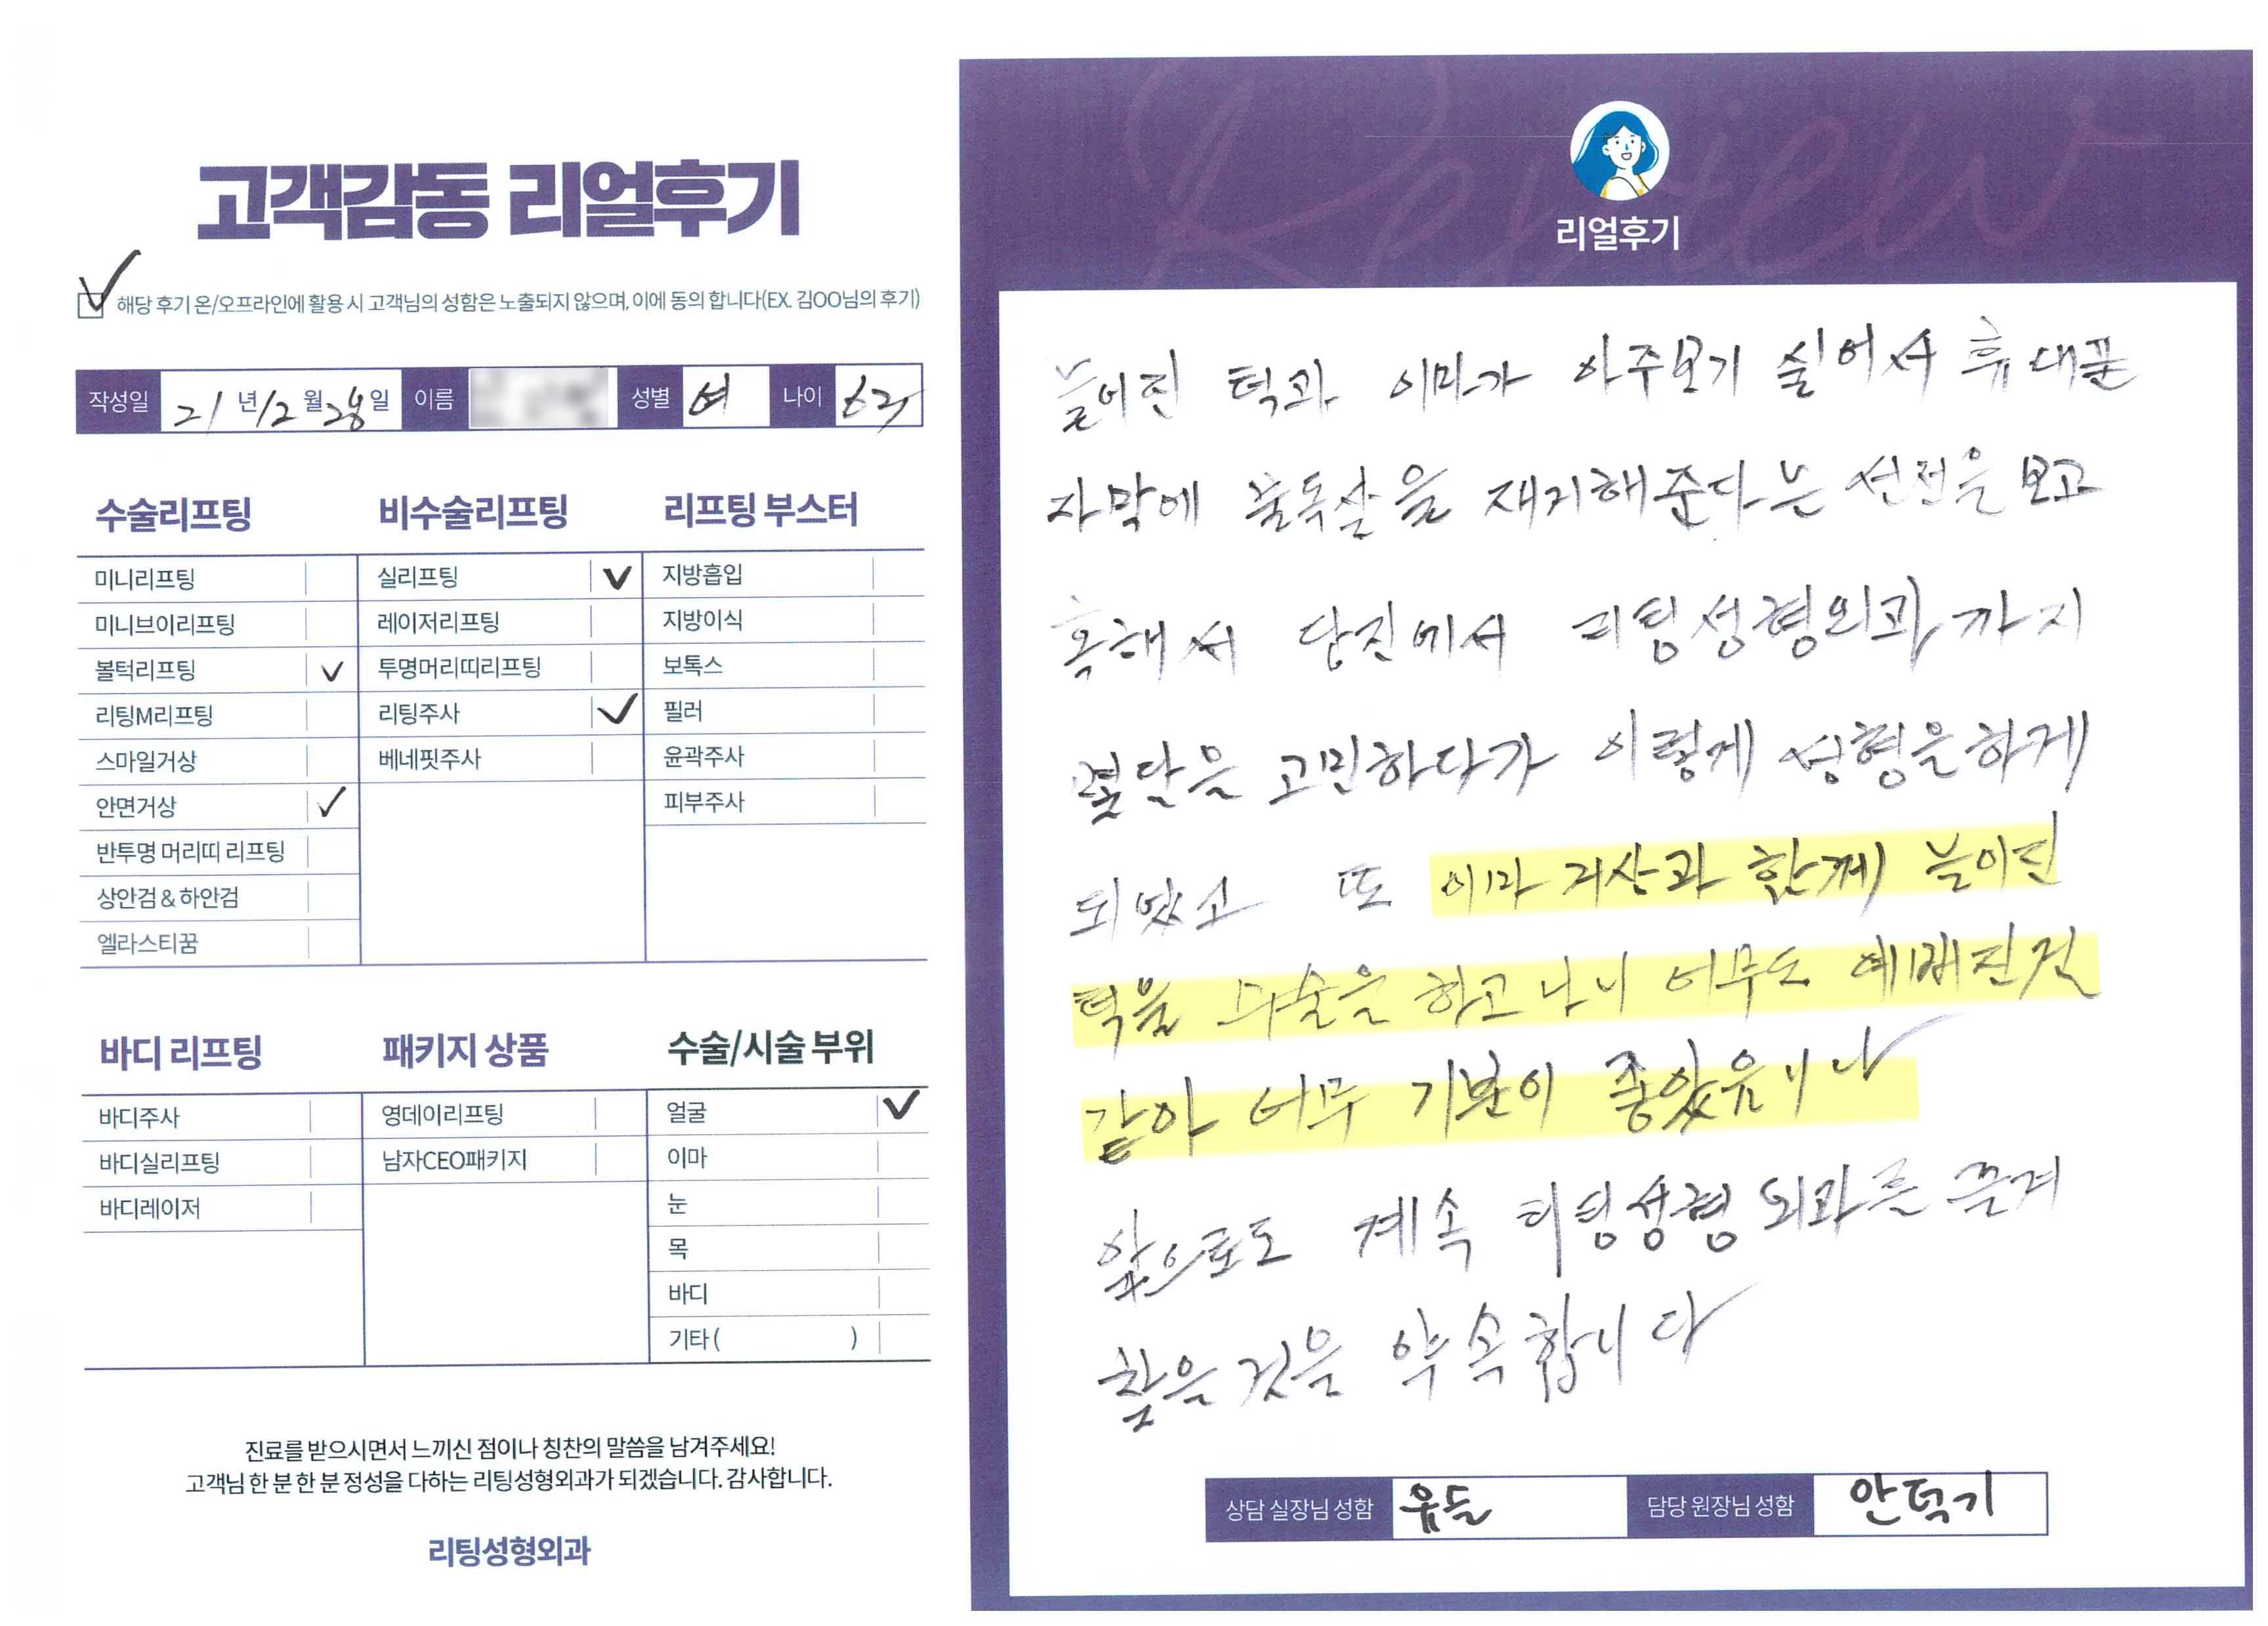 고객감동 리얼후기
해당 후기 온/오프라인에 활용 시 고객님의 성함은 노출되지 않으며, 이에 동의 합니다(EX. 김OO님의 후기)
작성일 21 년 12 월 28 일 이름 성별 여 나이
수술리프팅
미니리프팅
미니브이리프팅
볼턱리프팅 ✓
리팅M리프팅
스마일거상
안면거상 ✓
반투명 머리띠 리프팅
상안검 & 하안검
엘라스티꿈
비수술리프팅
실리프팅 ✓
레이저리프팅
투명머리띠리프팅
리팅주사 ✓
베네핏주사
리프팅 부스터
지방흡입
지방이식
보톡스
필러
윤곽주사
피부주사
바디 리프팅
바디주사
바디실리프팅
바디레이저
패키지 상품
영데이리프팅
남자CEO패키지
수술/시술 부위
얼굴 ✓
이마
눈
목
바디
기타 ( )
진료를 받으시면서 느끼신 점이나 칭찬의 말씀을 남겨주세요!
고객님 한 분 한 분 정성을 다하는 리팅성형외과가 되겠습니다. 감사합니다.
리팅성형외과
Review
리얼후기
늘어진 턱과 이마가 아주보기 싫어서 휴대폰
자막에 불독살을 재거해준다는 선전을 보고
혹해서 당진에서 리팅성형외과까지
몇달을 고민하다가 이렇게 성형을하게
되었고 또 이마 거상과 함께 늘어진
턱을 수술을 하고나니 너무도 예뻐진것
같아 너무 기분이 좋았음니다
앞으로도 계속 리팅성형외과를 즐겨
찾을것을 약속합니다
상담 실장님 성함
담당 원장님 성함 안덕기